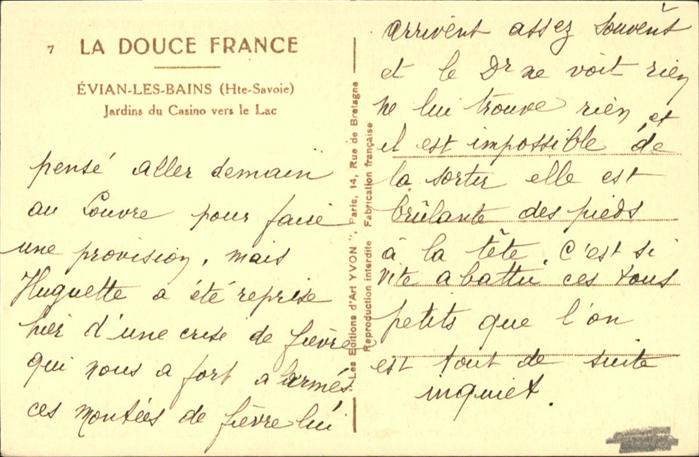 7 LA DOUCE FRANCE
ÉVIAN-LES-BAINS (Hte-Savoie)
Jardins du Casino vers le Lac
pensé aller demain
au Louvre pour faire
une provision, mais
Huguette a été reprise
hier d'une crise de fièvre
qui nous a fort alarmés
ces montées de fièvre lui
Les Editions d'Art YVON", Paris, 14, Rue de Bretagne
Reproduction interdite Fabrication française
arrivent assez souvent
et le Dr ne voit rien
ne lui trouve rien, et
il est impossible de
la sortir elle est
brûlante des pieds
à la tête. C'est si
vite abattu ces tous
petits que l'on
est tout de suite
inquiet.